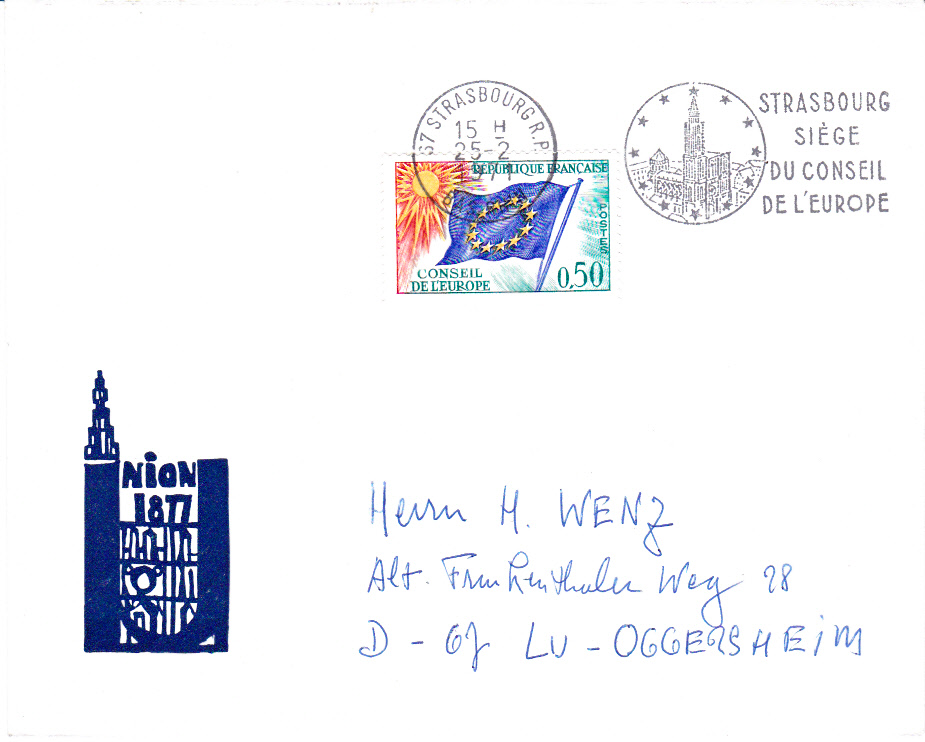 67 STRASBOURG R.P.
15 H
25-2
1971
STRASBOURG
SIÈGE
DU CONSEIL
DE L'EUROPE
RÉPUBLIQUE FRANÇAISE
POSTES
CONSEIL
DE L'EUROPE
0,50
UNION
1877
Herrn H. WENZ
Alt. Frankenthaler Weg 28
D - 67 LU - OGGERSHEIM